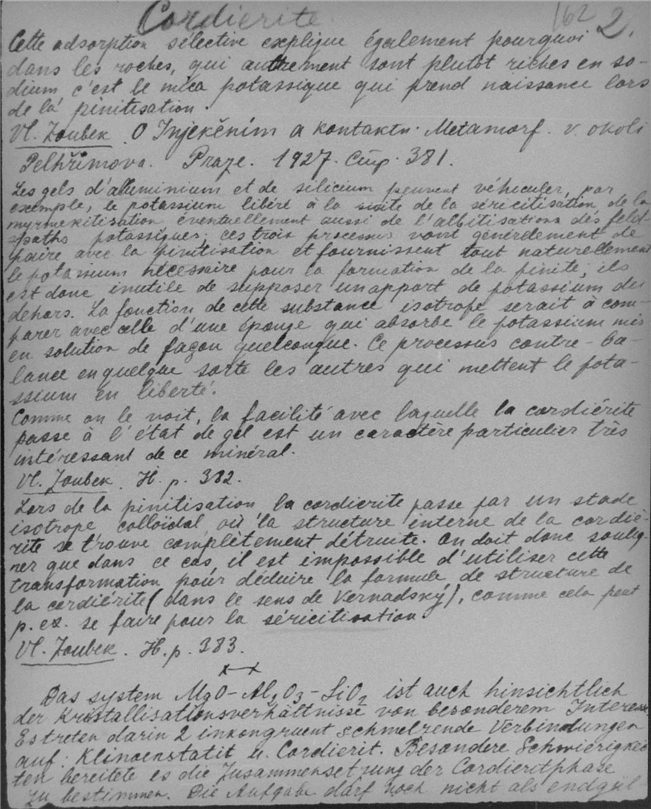 Cordiérite 162 2.
Cette adsorption sélective explique également pourquoi
dans les roches, qui autrement sont plutôt riches en so-
dium c'est le mica potassique qui prend naissance lors
de la pinitisation.
Vl. Zoubek. O Injekčním a kontaktn. Metamorf. v. okoli
Pelhřimova. Praze. 1927. Сmp. 381.
Les gels d'alluminium et de silicium peuvent véhiculer, par
exemple, le potassium libéré à la suite de la séricitisation de la
myrmekitisation éventuellement aussi de l'albitisations des feld-
spaths potassiques; ces trois processus vont générdement de
paire avec la pinitisation et fournissent tout naturellement
le potassium nécessaire pour la formation de la pinite, ils
est donc inutile de supposer un apport de potassium du
dehors. La fonction de cette substance isotrope serait à com-
parer avec celle d'une éponge qui absorbe le potassium mis
en solution de façon quelconque. Ce processus contre-ba-
lance en quelque sorte les autres qui mettent le pota-
ssium en liberté.
Comme on le voit, la facilité avec laquelle la cordiérite
passe à l'état de gel est un caractère particulier très
intéressant de ce minéral.
Vl. Zoubek. H. p. 382.
Lors de la pinitisation la cordierite passe par un stade
isotrope colloidal où la structure interne de la cordié-
rite se trouve complètement détruite. On doit donc soulig-
ner que dans ce cas, il est impossible d'utiliser cette
transformation pour déduire la formule de structure de
la cordiérite (dans le sens de Vernadský), comme cela peut
p. ex. se faire pour la séricitisation.
Vl. Zoubek. H. p. 383.
Das system MgO-Al2O3-SiO2 ist auch hinsichtlich
der Kristallisationsverhältnisse von besonderem Interesse
Es treten darin 2 inkongruent schmelzende Verbindungen
auf: Klinoenstatit u. Cordierit. Besondere Schwierigkei
ten bereitete es die Zusammensetzung der Cordieritphase
zu bestimmen. Die Aufgabe darf noch nicht als endgül